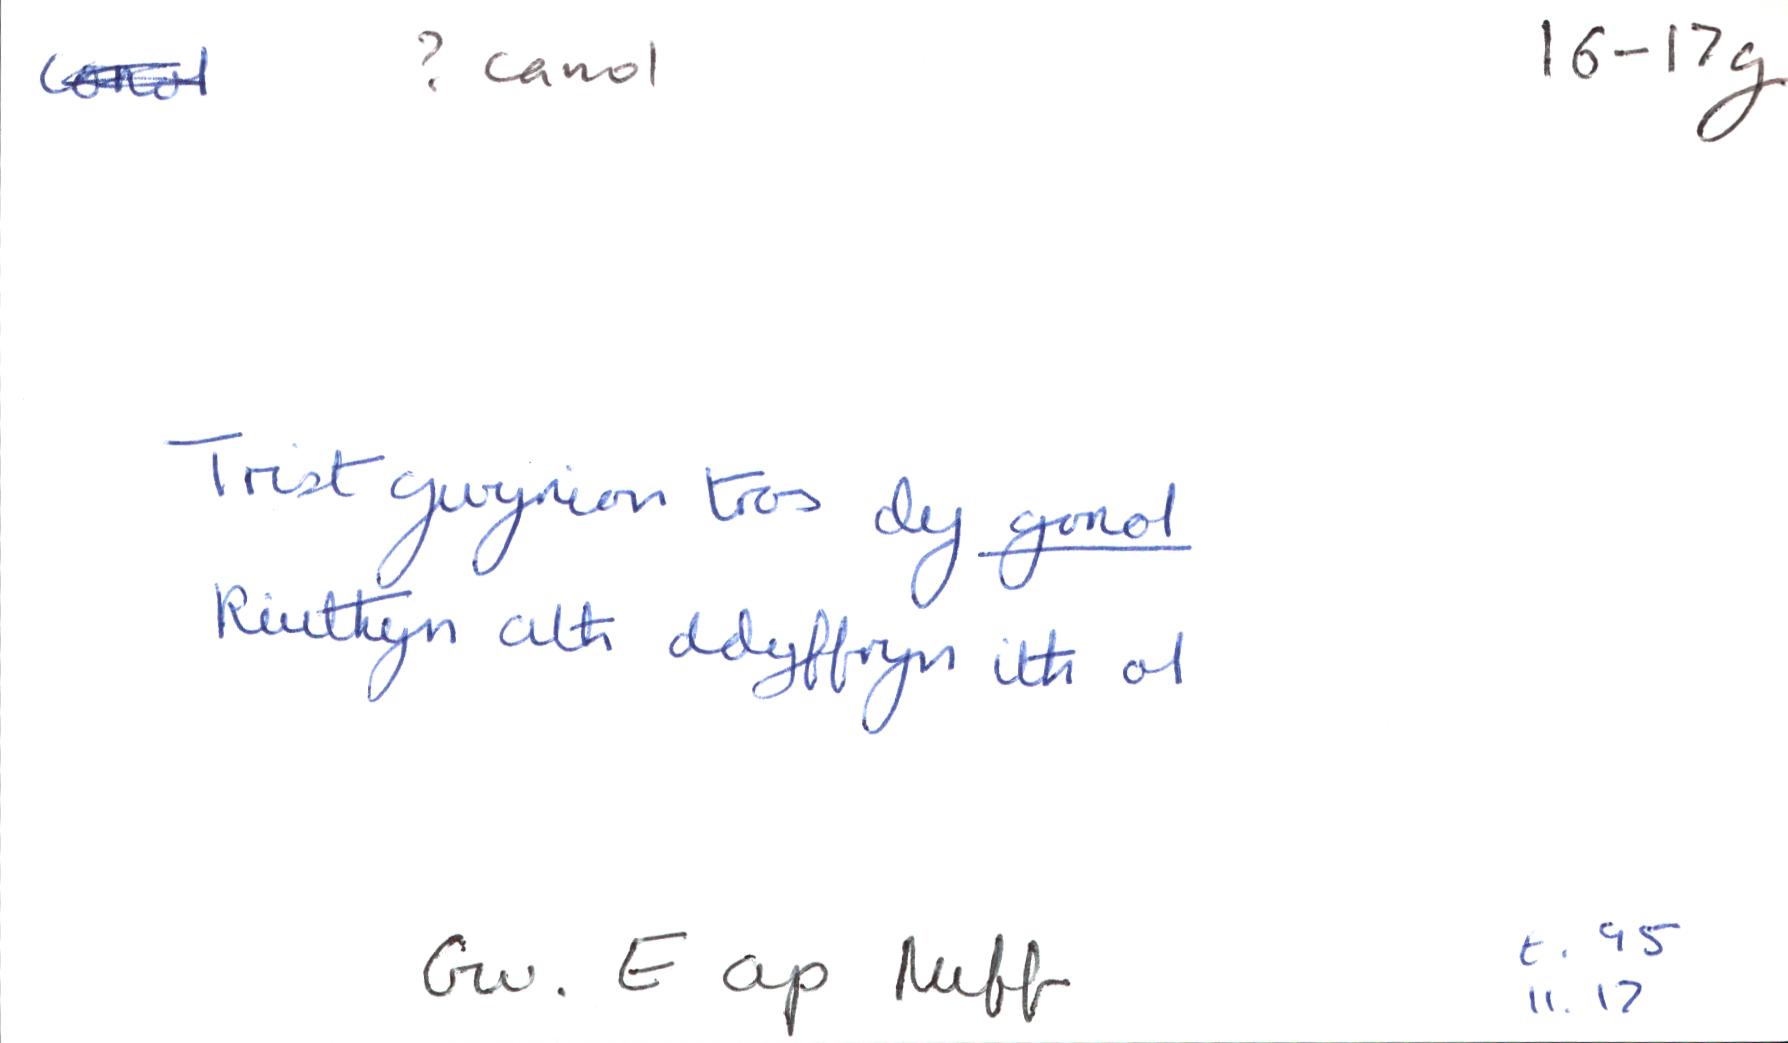 ? canol 16-17g
Trist gwynion tros dy gonol
Riuthyn alth ddyffryn ith ol
Gw. E ap
t. 95
11. 17